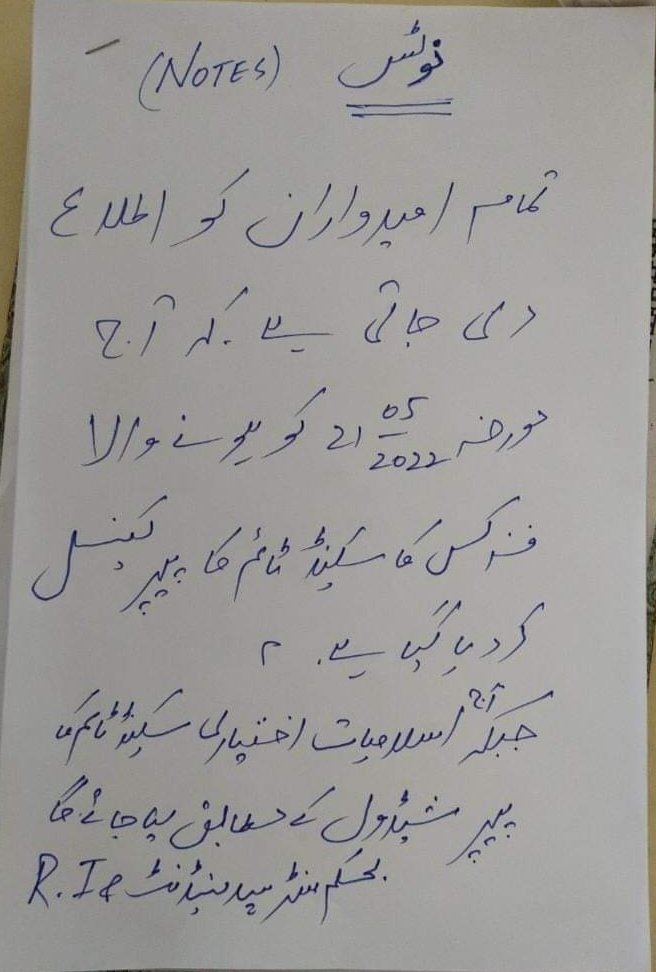 نوٹس (NOTES)
تمام امیدواران کو اطلاع
دی جاتی ہے کہ آج
مورخہ 21 05/2022 کو ہونے والا
فزکس کا سکینڈ ٹائم کا پیپر کینسل
کر دیا گیا ہے۔
جبکہ آج اسلامیات اختیاری سکینڈ ٹائم کا
پیپر شیڈول کے مطابق لیا جائے گا
بحکم سنٹر سپرنٹنڈنٹ R.I